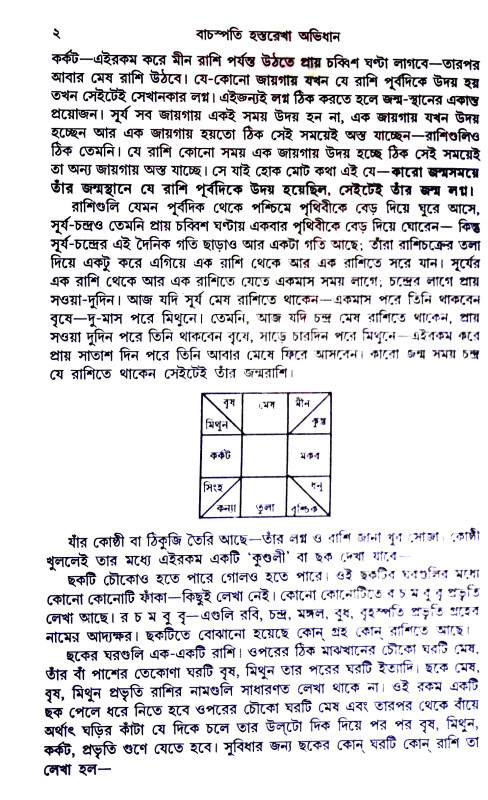 ২ বাচস্পতি হস্তরেখা অভিধান
কর্কট—এইরকম করে মীন রাশি পর্যন্ত উঠতে প্রায় চব্বিশ ঘণ্টা লাগবে—তারপর
আবার মেষ রাশি উঠবে। যে-কোনো জায়গায় যখন যে রাশি পূর্বদিকে উদয় হয়
তখন সেইটেই সেখানকার লগ্ন। এইজন্যই লগ্ন ঠিক করতে হলে জন্ম-স্থানের একান্ত
প্রয়োজন। সূর্য সব জায়গায় একই সময় উদয় হন না, এক জায়গায় যখন উদয়
হচ্ছেন আর এক জায়গায় হয়তো ঠিক সেই সময়েই অস্ত যাচ্ছেন—রাশিগুলিও
ঠিক তেমনি। যে রাশি কোনো সময় এক জায়গায় উদয় হচ্ছে ঠিক সেই সময়েই
তা অন্য জায়গায় অস্ত যাচ্ছে। সে যাই হোক মোট কথা এই যে—কারো জন্মসময়ে
তাঁর জন্মস্থানে যে রাশি পূর্বদিকে উদয় হয়েছিল, সেইটেই তাঁর জন্ম লগ্ন।
রাশিগুলি যেমন পূর্বদিক থেকে পশ্চিমে পৃথিবীকে বেড় দিয়ে ঘুরে আসে,
সূর্য-চন্দ্রও তেমনি প্রায় চব্বিশ ঘণ্টায় একবার পৃথিবীকে বেড় দিয়ে ঘোরেন— কিন্তু
সূর্য-চন্দ্রের এই দৈনিক গতি ছাড়াও আর একটা গতি আছে; তাঁরা রাশিচক্রের তলা
দিয়ে একটু করে এগিয়ে এক রাশি থেকে আর এক রাশিতে সরে যান। সূর্যের
এক রাশি থেকে আর এক রাশিতে যেতে একমাস সময় লাগে; চন্দ্রের লাগে প্রায়
সওয়া-দুদিন। আজ যদি সূর্য মেষ রাশিতে থাকেন—একমাস পরে তিনি থাকবেন
বৃষে—দু-মাস পরে মিথুনে। তেমনি, আজ যদি চন্দ্র মেষ রাশিতে থাকেন, প্রায়
সওয়া দুদিন পরে তিনি থাকবেন বৃষে, সাড়ে চারদিন পরে মিথুনে—এইরকম করে
প্রায় সাতাশ দিন পরে তিনি আবার মেষে ফিরে আসবেন। কারো জন্ম সময় চন্দ্র
যে রাশিতে থাকেন সেইটেই তাঁর জন্মরাশি।
বৃষ মেষ মীন
মিথুন কুম্ভ
কর্কট মকর
সিংহ ধনু
কন্যা তুলা বৃশ্চিক
যাঁর কোষ্ঠী বা ঠিকুজি তৈরি আছে—তাঁর লগ্ন ও রাশি জানা খুব সোজা। কোষ্ঠী
খুললেই তার মধ্যে এইরকম একটি 'কুণ্ডলী' বা ছক দেখা যাবে—
ছকটি চৌকোও হতে পারে গোলও হতে পারে। ওই ছকটির ঘরগুলির মধ্যে
কোনো কোনোটি ফাঁকা—কিছুই লেখা নেই। কোনো কোনোটিতে র চ ম বু বৃ প্রভৃতি
লেখা আছে। র চ ম বু বৃ—এগুলি রবি, চন্দ্র, মঙ্গল, বুধ, বৃহস্পতি প্রভৃতি গ্রহের
নামের আদ্যক্ষর। ছকটিতে বোঝানো হয়েছে কোন্ গ্রহ কোন্ রাশিতে আছে।
ছকের ঘরগুলি এক-একটি রাশি। ওপরের ঠিক মাঝখানের চৌকো ঘরটি মেষ,
তাঁর বাঁ পাশের তেকোণা ঘরটি বৃষ, মিথুন তার পরের ঘরটি ইত্যাদি। ছকে মেষ,
বৃষ, মিথুন প্রভৃতি রাশির নামগুলি সাধারণত লেখা থাকে না। ওই রকম একটি
ছক পেলে ধরে নিতে হবে ওপরের চৌকো ঘরটি মেষ এবং তারপর থেকে বাঁয়ে
অর্থাৎ ঘড়ির কাঁটা যে দিকে চলে তার উল্‌টো দিক দিয়ে পর পর বৃষ, মিথুন,
কর্কট, প্রভৃতি গুণে যেতে হবে। সুবিধার জন্য ছকের কোন্ ঘরটি কোন্ রাশি তা
লেখা হল—